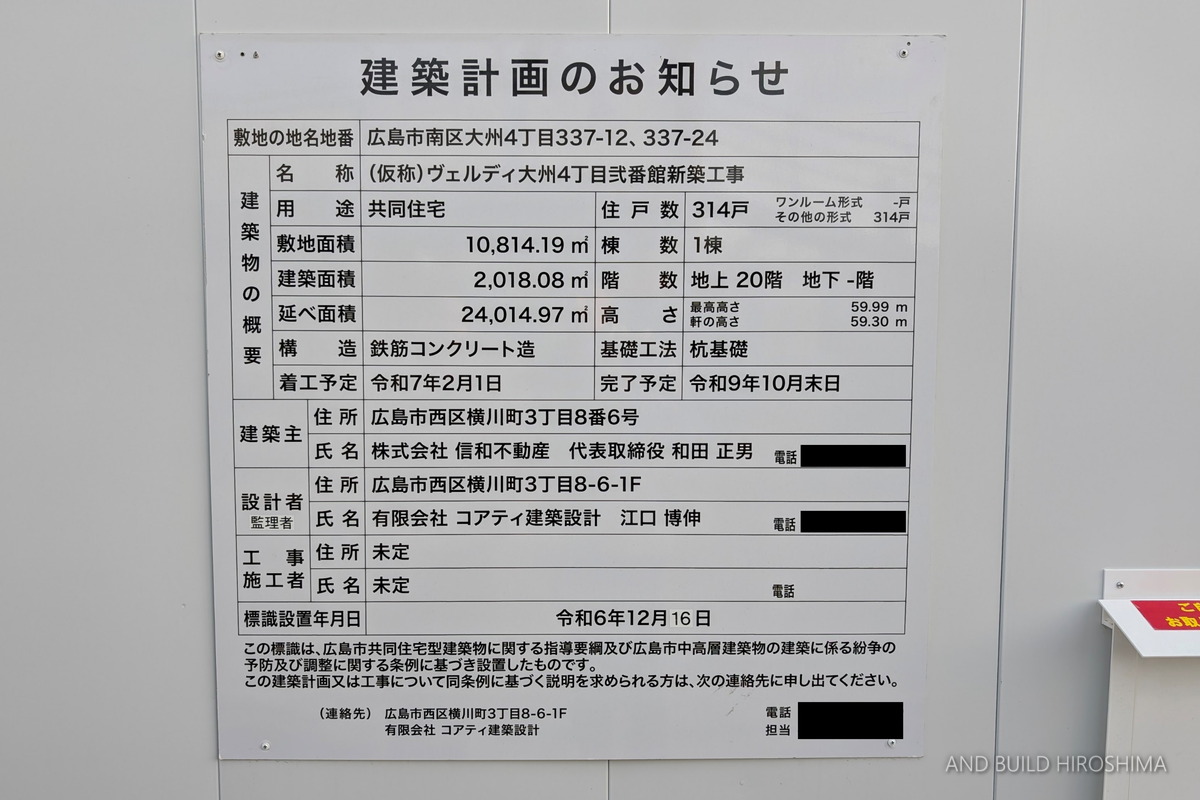 建築計画のお知らせ
敷地の地名地番 広島市南区大州4丁目337-12、337-24
建築物の概要
名称 (仮称)ヴェルディ大州4丁目弐番館新築工事
用途 共同住宅 住戸数 314戸 ワンルーム形式 -戸
その他の形式 314戸
敷地面積 10,814.19㎡ 棟数 1棟
建築面積 2,018.08㎡ 階数 地上 20階 地下 -階
延べ面積 24,014.97㎡ 高さ 最高高さ 59.99 m
軒の高さ 59.30 m
構造 鉄筋コンクリート造 基礎工法 杭基礎
着工予定 令和7年2月1日 完了予定 令和9年10月末日
建築主 住所 広島市西区横川町3丁目8番6号
氏名 株式会社 信和不動産 代表取締役 和田 正男 電話
設計者 監理者 住所 広島市西区横川町3丁目8-6-1F
氏名 有限会社 コアティ建築設計 江口 博伸 電話
工事施工者 住所 未定
氏名 未定 電話
標識設置年月日 令和6年12月16日
この標識は、広島市共同住宅型建築物に関する指導要綱及び広島市中高層建築物の建築に係る紛争の
予防及び調整に関する条例に基づき設置したものです。
この建築計画又は工事について同条例に基づく説明を求められる方は、次の連絡先に申し出てください。
(連絡先) 広島市西区横川町3丁目8-6-1F 電話
有限会社 コアティ建築設計 担当
AND BUILD HIROSHIMA